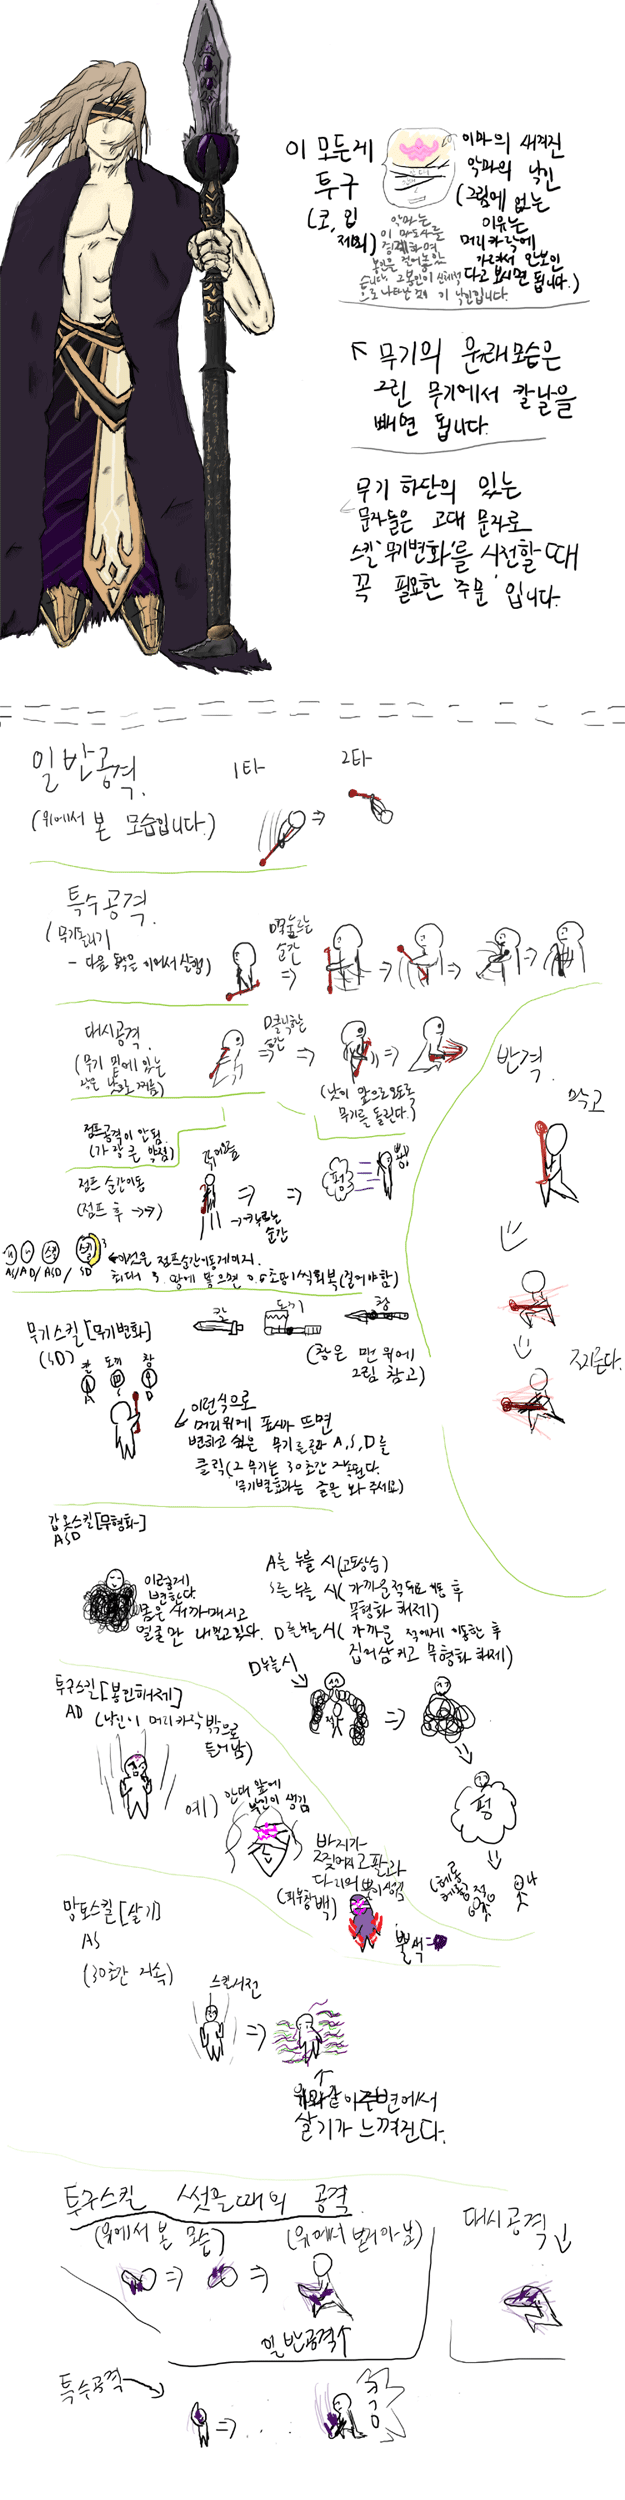 이 모든게
투구
(코, 입
제외)
이마의 새겨진
악마의 낙인
(그림에 없는
이유는
머리카락에
가려서 안보인
다고 보시면 됩니다.)
악마는
이 마도사를
경계하며
봉인을 걸어놓았
습니다. 그 봉인이 신체적
으로 나타난 게 이 낙인입니다.
무기의 원래모습은
그린 무기에서 칼날을
빼면 됩니다.
무기 하단의 있는
문자들은 고대 문자로
스킬 '무기변화'를 시전할때
꼭 필요한 '주문' 입니다.
일반공격.
(위에서 본 모습입니다.)
1타
2타
특수공격.
(무기돌리기
- 다음 동작은 이어서 실행)
D떡눌르는
순간
대시공격.
(무기 밑에 있는
작은 낫으로 찌름)
D클릭하는
순간
(낫이 앞으로 오도록
무기를 돌린다.)
반격.
막고
찌른다.
점프공격이 안됨.
(가장 큰 약점)
점프 순간이동
(점프 후 →→)
→키누르는
순간
펑
뿅!
AS/ AD/ ASD/ SD
스킬
←이것은 점프순간이동게이지.
최대 3. 땅에 닿으면 0.5초마다 1씩 회복(걸어야함)
무기스킬 [무기변화]
(SD)
칼 도끼 창
A S D
칼
도끼
창
(창은 맨 위에
그림 참고)
이런식으로
머리위에 표시가 뜨면
변하고 싶은 무기를 골라 A,S,D를
클릭(그 무기는 30초간 지속된다.
무기별효과는 글을 봐 주세요)
갑옷스킬[무형화]
ASD
이렇게
변한다.
몸은 새까매지고
얼굴만 내밀고있다.
A를 누를 시(고도상승)
S를 누를 시(가까운적뒤로 이동 후
무형화 해제)
D를누를시(가까운 적에게 이동한 후
집어삼키고 무형화 해제)
D누를시
적
펑
(헤롱
헤롱)
적
나
투구스킬[봉인해제]
AD
(낙인이 머리카락 밖으로
드러남)
예)
안대 앞에
낙인이 생김
바지가
찢어지고 팔과
다리에 뿔이생김
(피부창백)
뿔색=
망토스킬[살기]
AS
(30초간 지속)
스킬시전
위와같이주변에서
살기가 느껴진다.
투구스킬 썼을때의 공격.
(위에서 본 모습)
일반공격↑
대시공격
특수공격
쿠궁